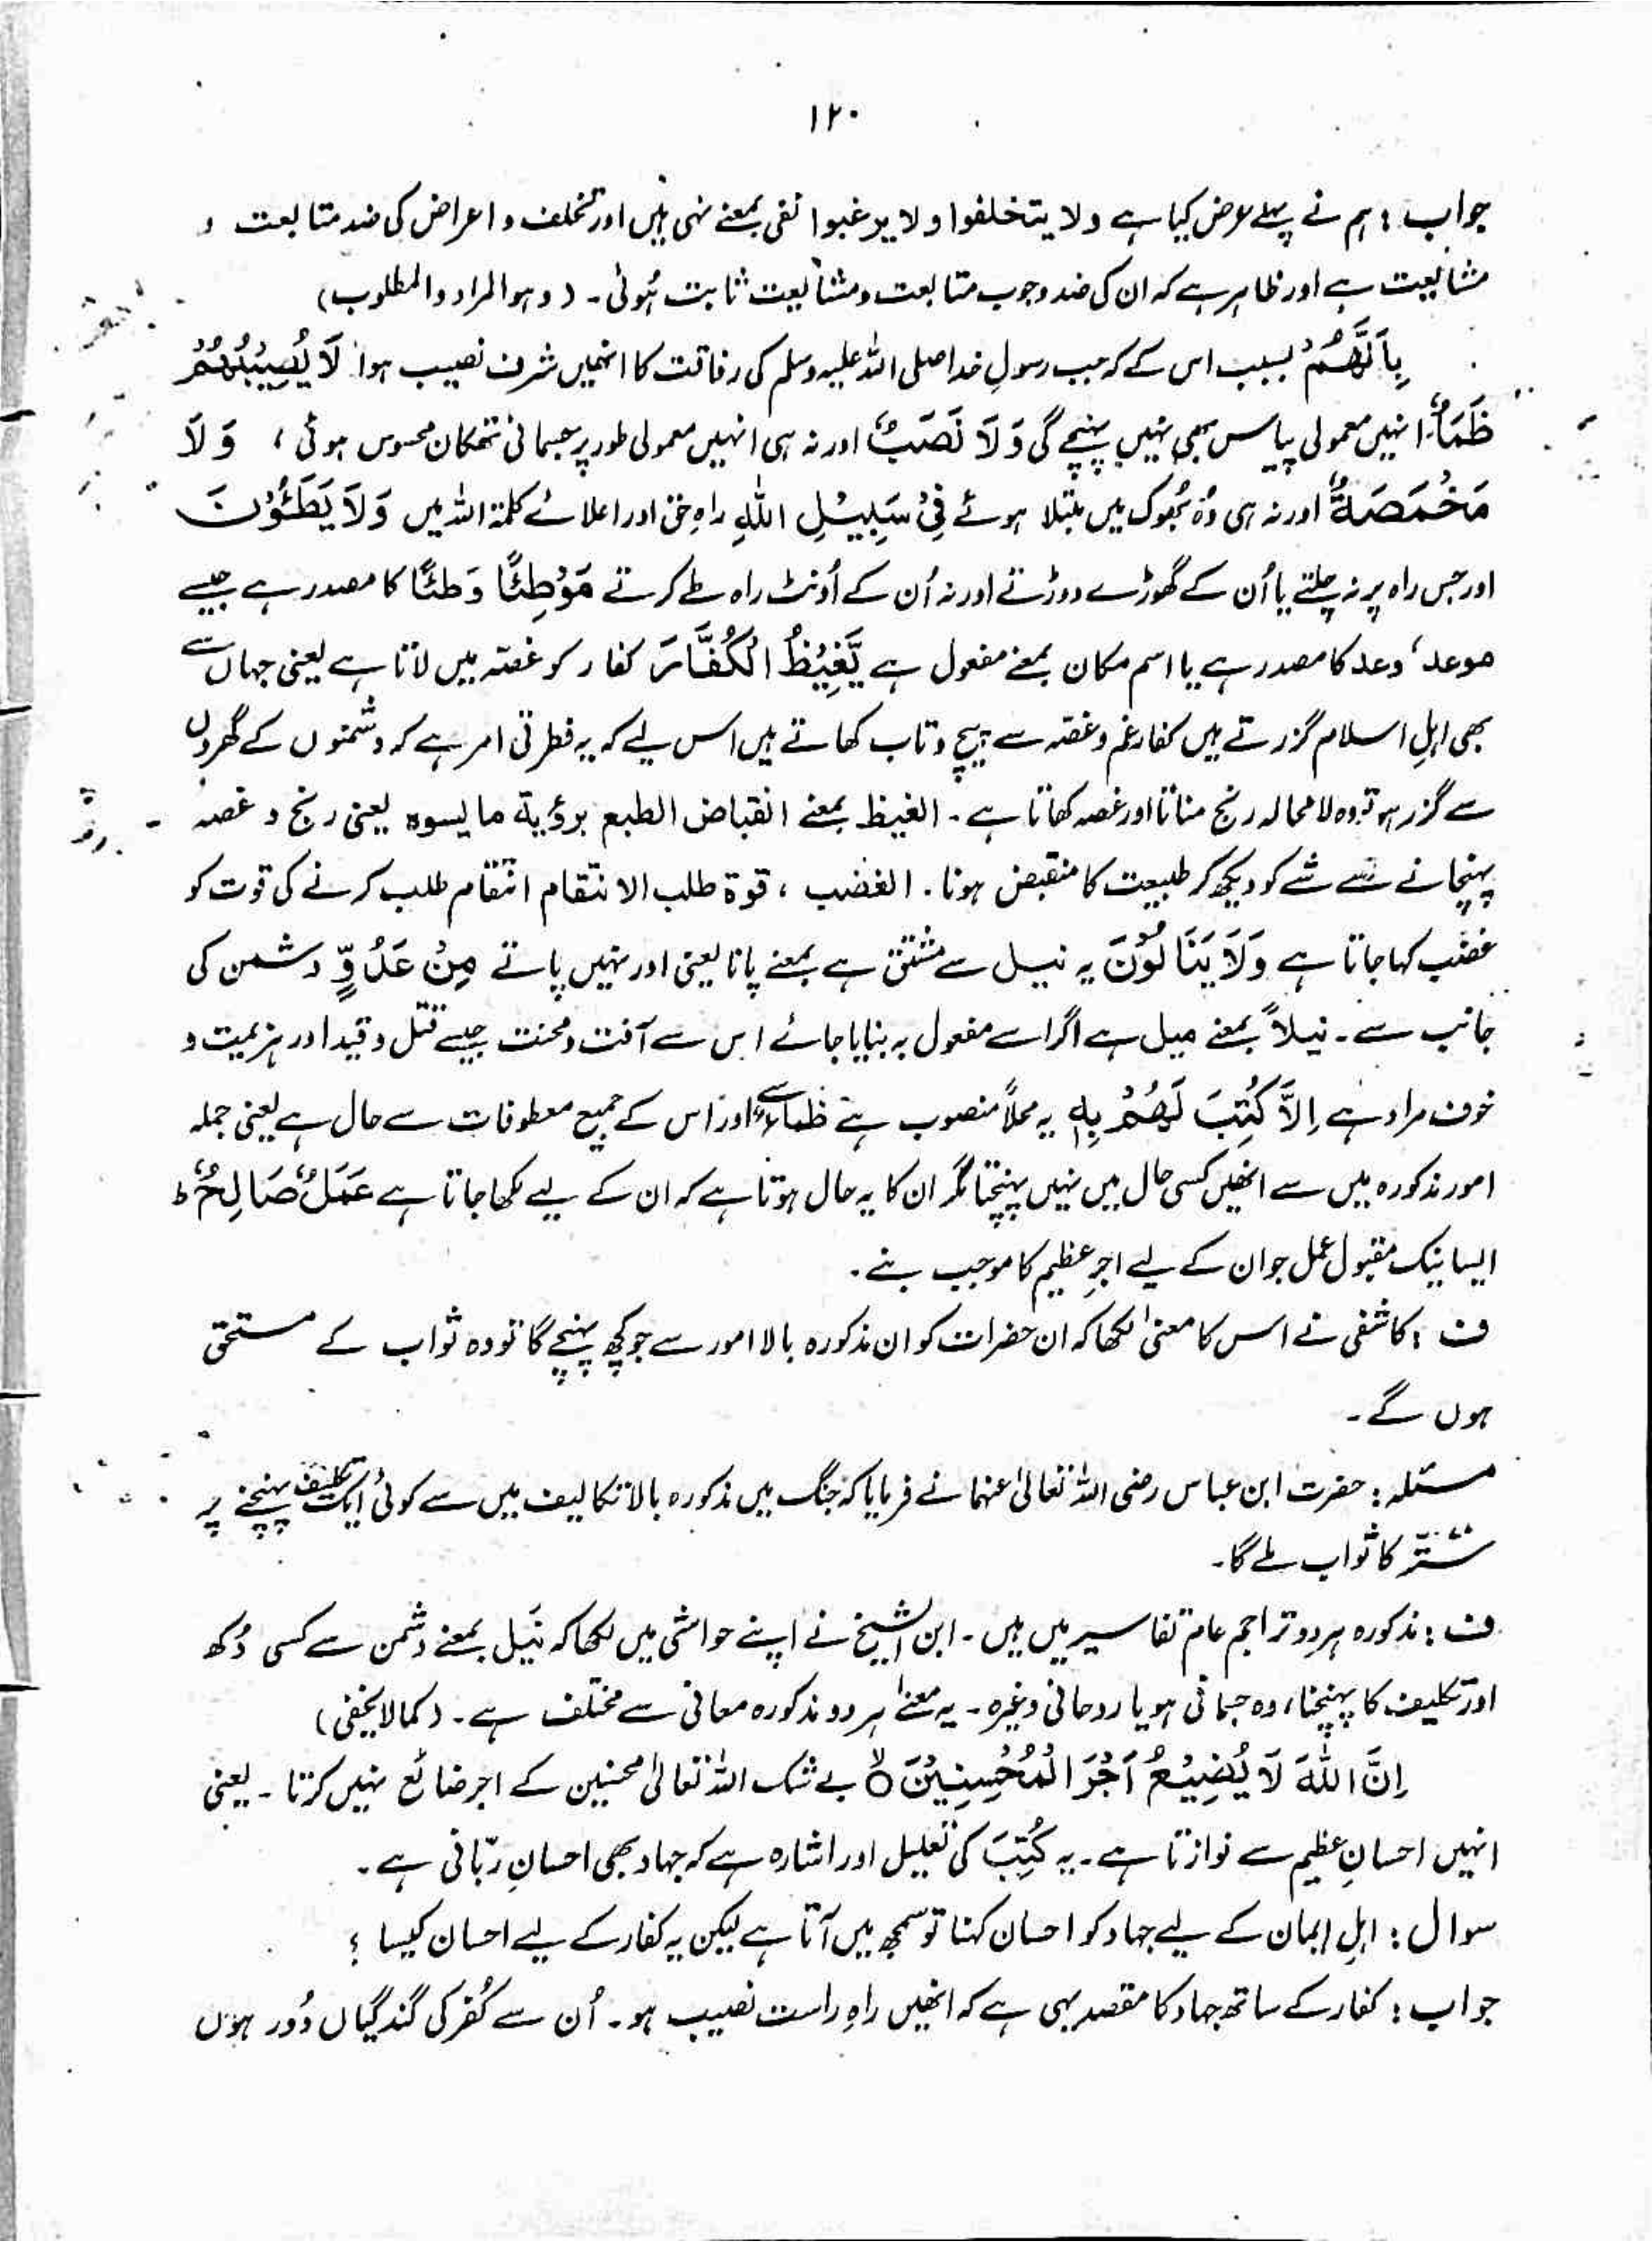 ۱۲۰
جواب : ہم نے پہلے عرض کیا ہے ولا یتخلفوا ولا یرغبوا نفی بمعنے نہی ہیں اور تخلف و اعراض کی ضد متابعت و
مشایعت ہے اور ظاہر ہے کہ ان کی ضد وجوب متابعت و مشایعت ثابت ہُوئی ۔ (و ہو المراد والمطلوب)
بِاَنَّھُمْ بسبب اس کے کہ جب رسولِ خدا صلی اللہ علیہ وسلم کی رفاقت کا انھیں شرف نصیب ہوا لَا یُصِیْبُھُمْ
ظَمَاٌ انہیں معمولی پیاس بھی نہیں پہنچے گی وَلَا نَصَبٌ اور نہ ہی انہیں معمولی طور پر جسمانی تھکان محسوس ہوئی ، وَلَا
مَخْمَصَةٌ اور نہ ہی وُہ بُھوک میں مبتلا ہوئے فِیْ سَبِیْلِ اللّٰہِ راہِ حق اور اعلائے کلمۃ اللہ میں وَلَا یَطَـُٔوْنَ
اور جس راہ پر نہ چلتے یا اُن کے گھوڑے دوڑتے اور نہ اُن کے اُونٹ راہ طے کرتے مَوْطِئًا وَطئًا کا مصدر ہے جیسے
موعد ، وعد کا مصدر ہے یا اسم مکان بمعنے مفعول ہے یَّغِیْظُ الْکُفَّارَ کفار کو غصّہ میں لاتا ہے یعنی جہاں سے
بھی اہلِ اسلام گزرتے ہیں کفار غم و غصّہ سے پیچ و تاب کھاتے ہیں اس لیے کہ یہ فطرتی امر ہے کہ دشمنوں کے گھروں
سے گزر ہو تو وہ لامحالہ رنج مناتا اور غصہ کھاتا ہے ۔ الغیظ بمعنے انقباض الطبع برؤیة ما یسوہ یعنی رنج و غصہ
پہنچانے شے کو دیکھ کر طبیعت کا منقبض ہونا ۔ الغضب ، قوة طلب الانتقام انتقام طلب کرنے کی قوت کو
غضب کہا جاتا ہے وَلَا یَنَالُوْنَ یہ نیل سے مشتق ہے بمعنے پانا یعنی اور نہیں پاتے مِنْ عَدُوٍّ دشمن کی
جانب سے ۔ نیلاً بمعنے میل ہے اگر اسے مفعول بہ بنایا جائے اس سے آفت و محنت جیسے قتل و قید اور ہزیمت و
خوف مراد ہے اِلَّا کُتِبَ لَھُمْ بِہٖ یہ محلاً منصوب ہے ظماء سے اور اس کے جمیع معطوفات سے حال ہے یعنی جملہ
امور مذکورہ میں سے انھیں کسی حال میں نہیں پہنچتا مگر ان کا یہ حال ہوتا ہے کہ ان کے لیے لکھا جاتا ہے عَمَلٌ صَالِحٌ ط
ایسا نیک مقبول عمل جو ان کے لیے اجرِ عظیم کا موجب بنے ۔
ف : کاشفی نے اس کا معنیٰ لکھا کہ ان حضرات کو ان مذکورہ بالا امور سے جو کچھ پہنچے گا تو وہ ثواب کے مستحق
ہوں گے ۔
مسئلہ : حضرت ابن عباس رضی اللہ تعالیٰ عنہما نے فرمایا کہ جنگ میں مذکورہ بالا تکالیف میں سے کوئی ایک تکلیف پہنچنے پر
ستّر کا ثواب ملے گا ۔
ف : مذکورہ ہر دو تراجم عام تفاسیر میں ہیں ۔ ابن الشیخ نے اپنے حواشی میں لکھا کہ نَیل بمعنے دشمن سے کسی دُکھ
اور تکلیف کا پہنچنا ، وہ جسمانی ہو یا روحانی وغیرہ ۔ یہ معنے ہر دو مذکورہ معانی سے مختلف ہے ۔ (کما لا یخفی)
اِنَّ اللّٰہَ لَا یُضِیْعُ اَجْرَ الْمُحْسِنِیْنَ ۝ بے شک اللہ تعالیٰ محسنین کے اجر ضائع نہیں کرتا ۔ یعنی
انہیں احسانِ عظیم سے نوازتا ہے ۔ یہ کُتِبَ کی تعلیل اور اشارہ ہے کہ جہاد بھی احسانِ ربّانی ہے ۔
سوال : اہلِ ایمان کے لیے جہاد کو احسان کہنا تو سمجھ میں آتا ہے لیکن یہ کفار کے لیے احسان کیسا ؟
جواب : کفار کے ساتھ جہاد کا مقصد یہی ہے کہ انھیں راہِ راست نصیب ہو ۔ اُن سے کُفر کی گندگیاں دُور ہوں